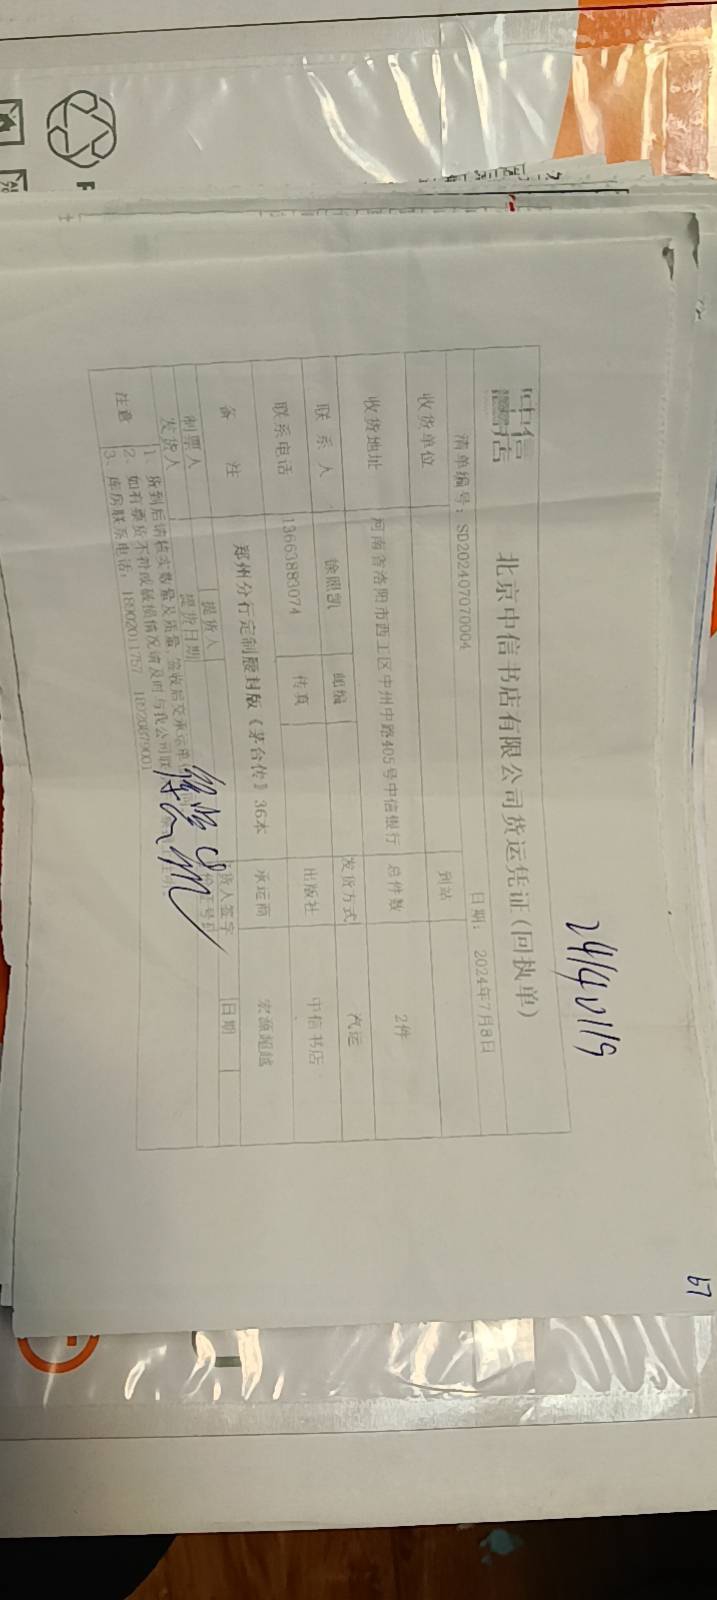 24140119
中信書店
北京中信书店有限公司货运凭证(回执单)
清单编号: SD202407070004 日期: 2024年7月8日
收货单位 到站
收货地址 河南省洛阳市西工区中州中路405号中信银行 总件数 2件
联系人 徐照凯 邮编 发货方式 汽运
联系电话 13663883074 传真 出版社 中信书店
备注 郑州分行定制腰封版《茅台传》36本 承运商 宏源超越
制票人 提货人 货人签字 日期
发货人 提货日期
注意
1、货到后请核实数量及质量,签收后交承运单位
2、如有票货不符或破损情况请及时与我公司联
3、库房联系电话: 18902011757
67